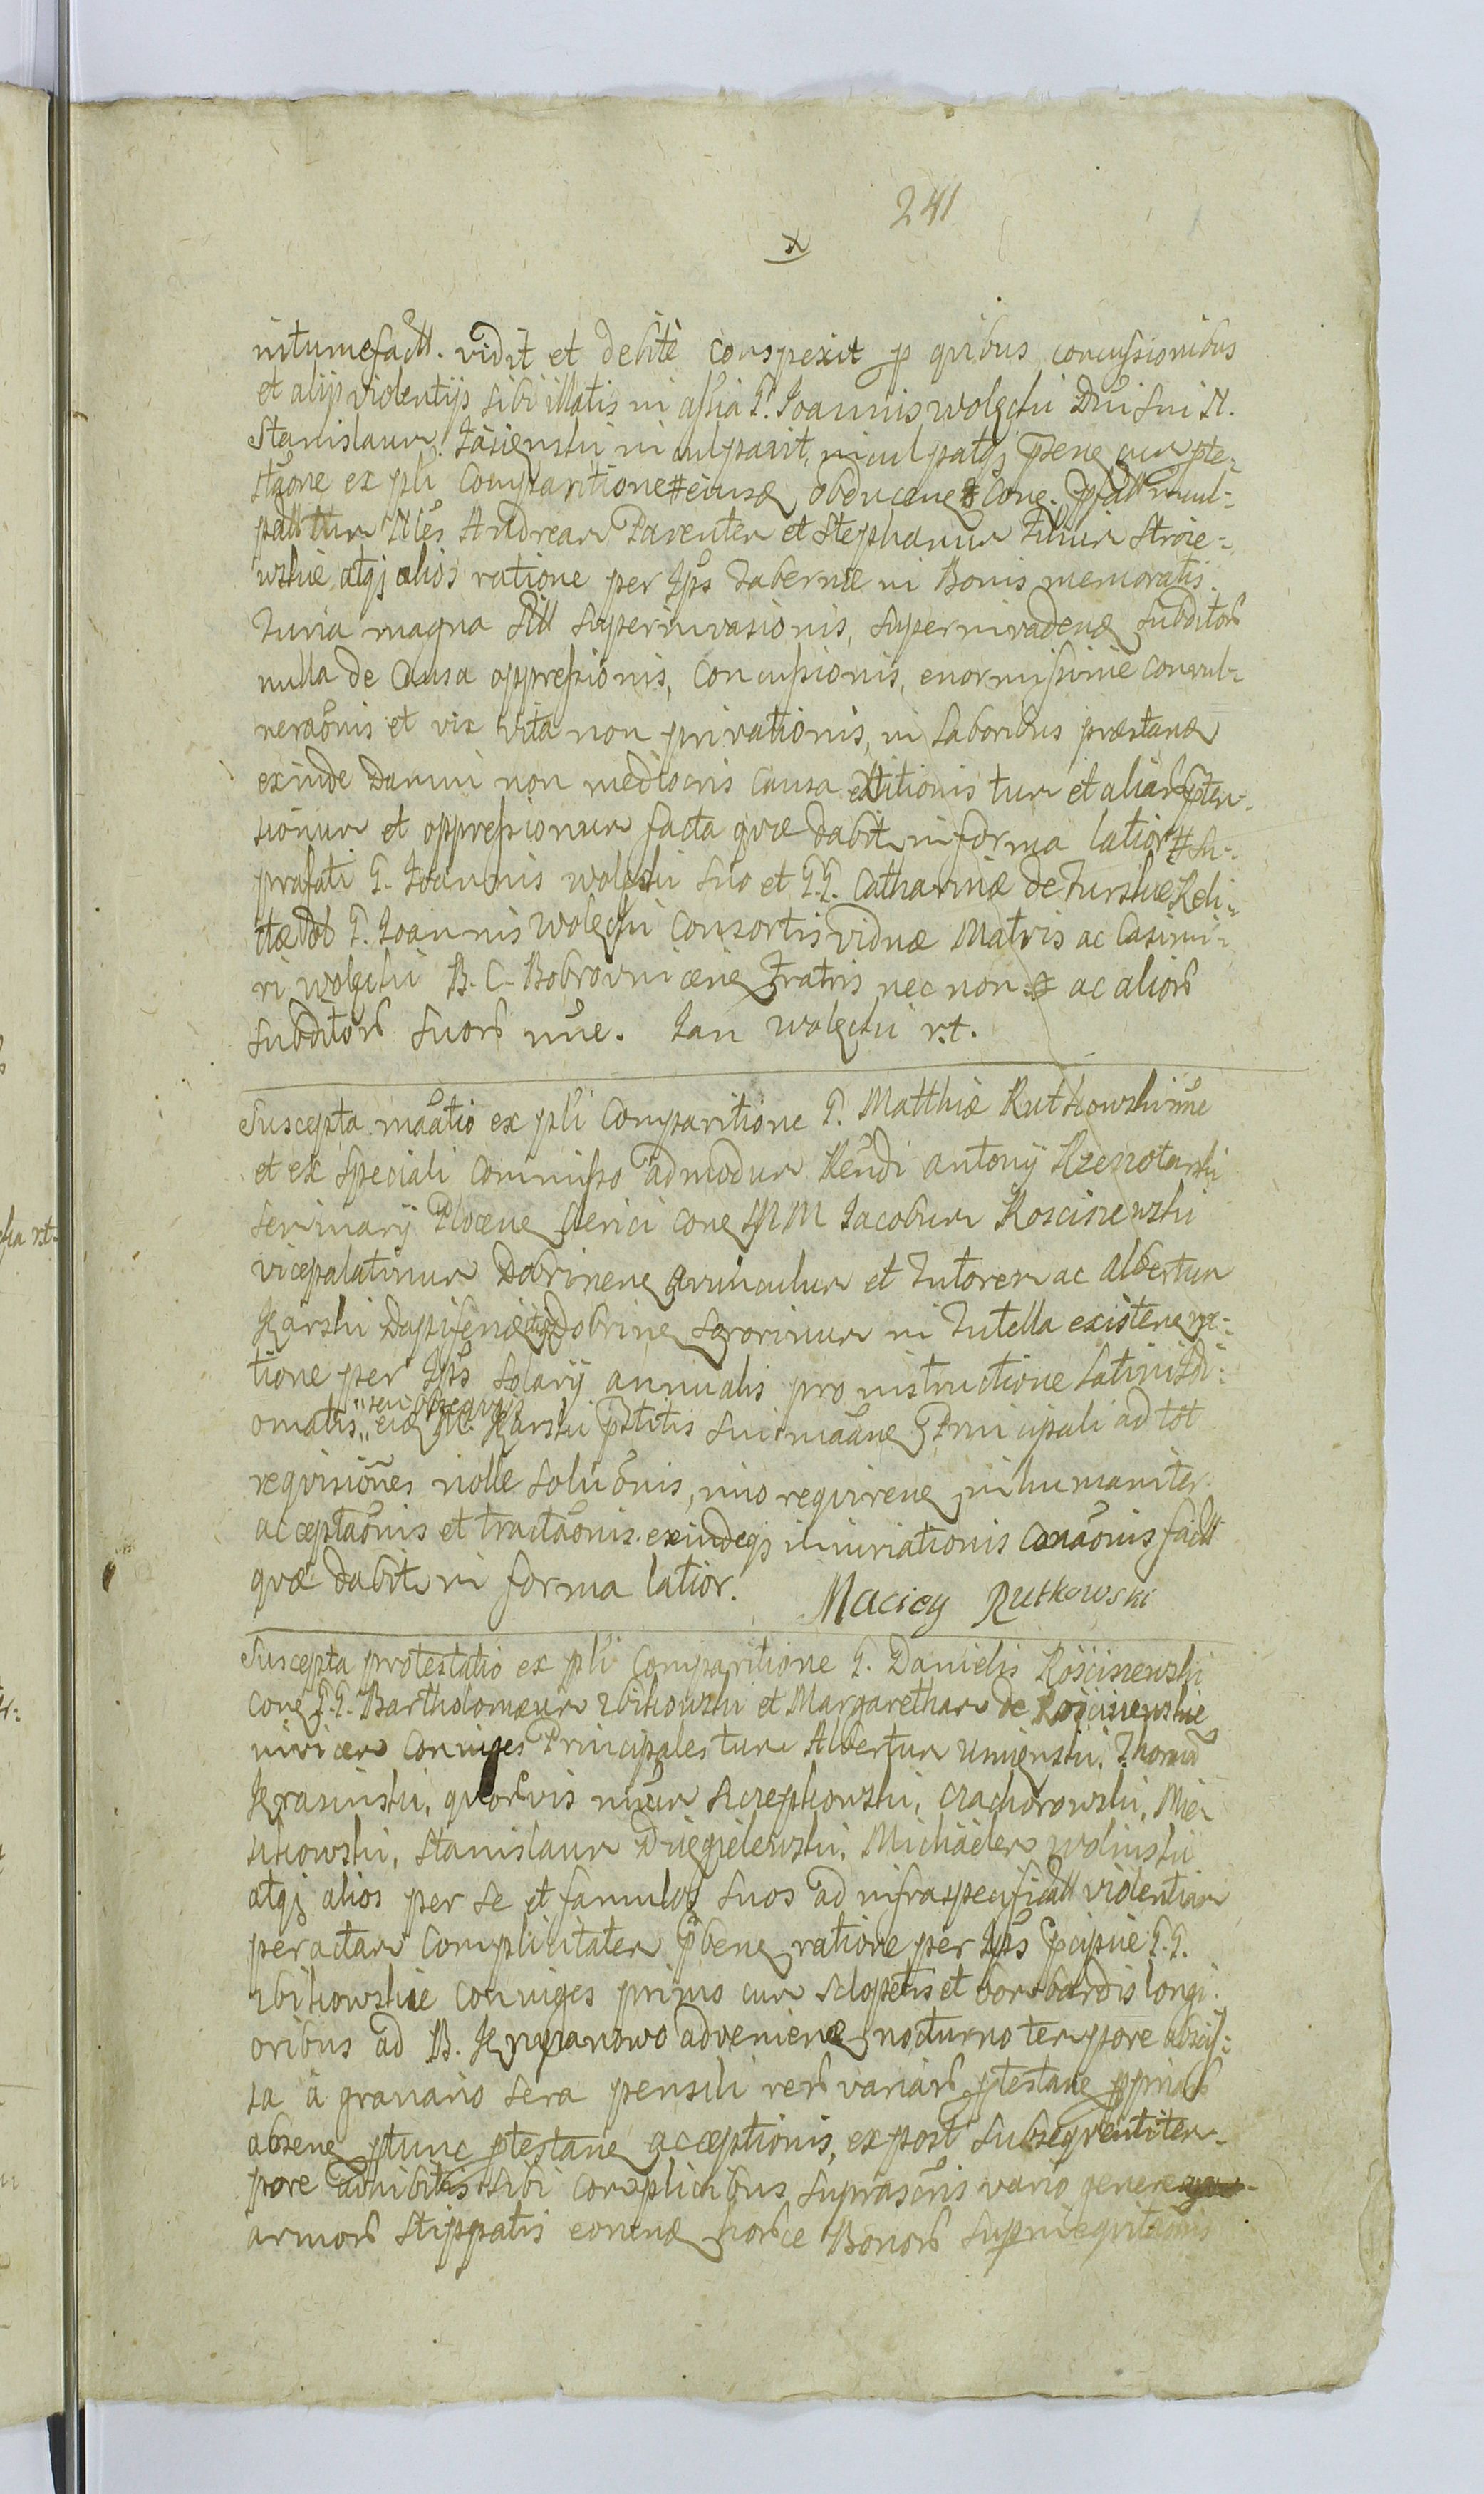 241
x
intumefactt. vidit et debitè conspexit p quibus concussionibus
et alijs violentijs sibi illatis in assia G. Joannis wolęcki Dni sui N.
Stanislaum Jasienski inculpavit, inculpatqꝫ
ex pli Comparitione # eiusd obducen Con
tum Nles Andream Parentem et Stephanum Filium Stroie-
wskie atqꝫ alios ratione per Ips Tabernæ in Bonis memoratis
Furia magna superinvasionis, superinvaden subditos
nulla de Causa oppressionis, Concussionis, enormissime convul-
neraonis et vix vita non privationis, in Laboribus præstan
exinde Damni non mediocris causa extitionis tum et aliar
sionum et oppressionum facta quæ dabit in forma latiori #
præfati G. Joannis wolęcki suo et G.G. Catharinæ de Turskie Reli-
ctæ ol G. Joannis wolęcki Consortis viduæ Matris ac Casimi-
ri wolęcki B. C. Bobrovnicen Fratris nec non ac alior
subditor suor nne. Jan wolęcki r.t.
Suscepta maatio ex pli Comparitione G. Matthiæ Rutkowski nne
et ex speciali Commisso admodum Rendi antonij Rzeszotarski
seminarij Plocen Clerici Con MM Jacobum Kosciszewski
vicepalatinum Dobrinen avunculum et Tutorem ac albertum
Karski Dapiferi Dobrinen sororinum in Tutella existen ra-
tione per Ips solarij annualis pro instructione latini Idi-
omatis „seu obsequijs„ eid M. Karski ptitis sui maan Principali ad tot
requisiones nolle soluonis, imo requiren inhumaniter
acceptaonis et tractaonis exindeqꝫ iniuriationis causaonis factt
quæ dabit in forma latior. Maciey Rutkowski
Suscepta protestatio ex pli Comparitione G. Danielis Kosciszewski
Con G.G. Bartholomæum zbikowski et Margaretham de Kosciszewskie
invicem Coniuges Principales tum Albertum Umienski, Thomam
Krasinski, quorvis nnum Szczepkowski, Czachorowski, Mie
szkowski, Stanislaum Dzięgielewski, Michäelem wolinski
atqꝫ alios per se et famulos suos ad infraspecificatt violentiam
peractam Complicitatem pben ratione per Ips pcipue G.G.
zbikowskie Coniuges primo cum sclopetis et bombardis longi-
oribus ad B. advenien nocturno tempore abscis-
sa à granario sera pensili rer variar ptestan
absen ptunc ptestan acceptionis, expost subsequenti tem-
pore adhibitis sibi Complicibus suprascris vario genere
armor stippatis eorund Bonor